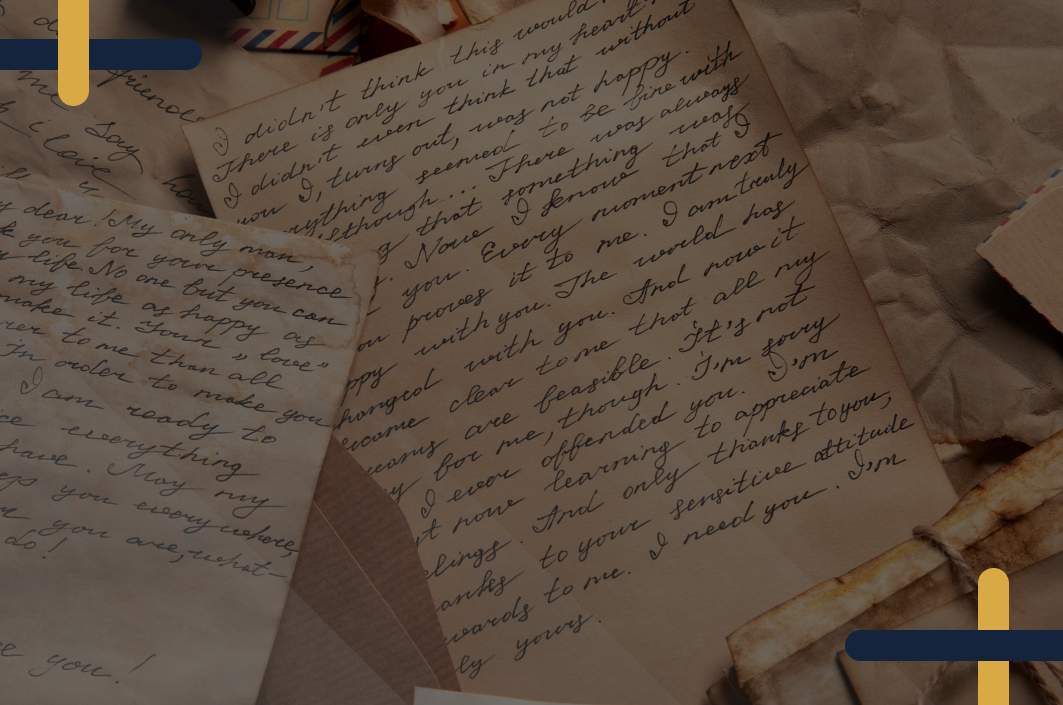 friends
me
Say
I didn't think this would
There is only you in my heart.
I didn't even think that without
you I, turns out, was not happy.
rything seemed to be fine with
lthough... There was always
g that something was
. Now I know that I
you. Every moment next
ou proves it to me. I am truly
ppy with you. The world has
hanged with you. And now it
ecame clear to me that all my
reams are feasible. It's not
y for me, though. I'm sorry
I ever offended you. I'm
t now learning to appreciate
elings. And only thanks to you,
anks to your sensitive attitude
wards to me. I need you. I'm
ly yours.
y dear! My only man,
k you for your presence
y life. No one but you can
my life as happy as
make it. Your „love”
rer to me than all
In order to make you
I am ready to
ce everything
have. May my
eps you everywhere,
r you are, what-
do!
e you!